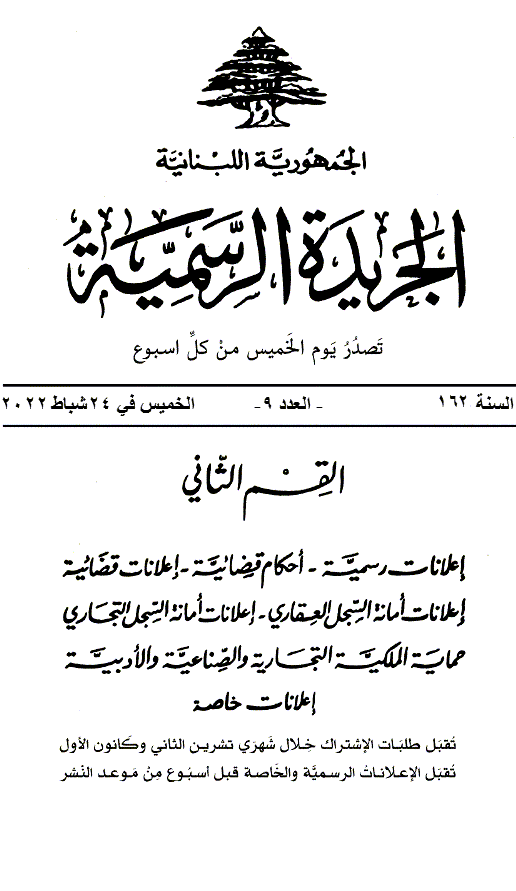 الجمهورية اللبنانية
الجريدة الرسمية
تَصدُرُ يَوم الخَميس منْ كلِّ اسبوع
السنة ١٦٢ - العدد ٩- الخميس في ٢٤ شباط ٢٠٢٢
القِسْم الثّاني
إعلانات رسميَّة - أحكام قضائيَّة - إعلانات قضائية
إعلانات أمانة السِّجل العقاري - إعلانات أمانة السِّجل التجاري
حماية الملكيَّة التجارية والصِّناعيَّة والأدبيَّة
إعلانات خاصة
تُقبَل طلبَات الإشتراك خِلال شَهرَي تشرين الثاني وكَانون الأول
تُقبَل الإعلاناتُ الرسميَّة والخَاصة قبل أسبُوع مِنْ مَوعد النَشر